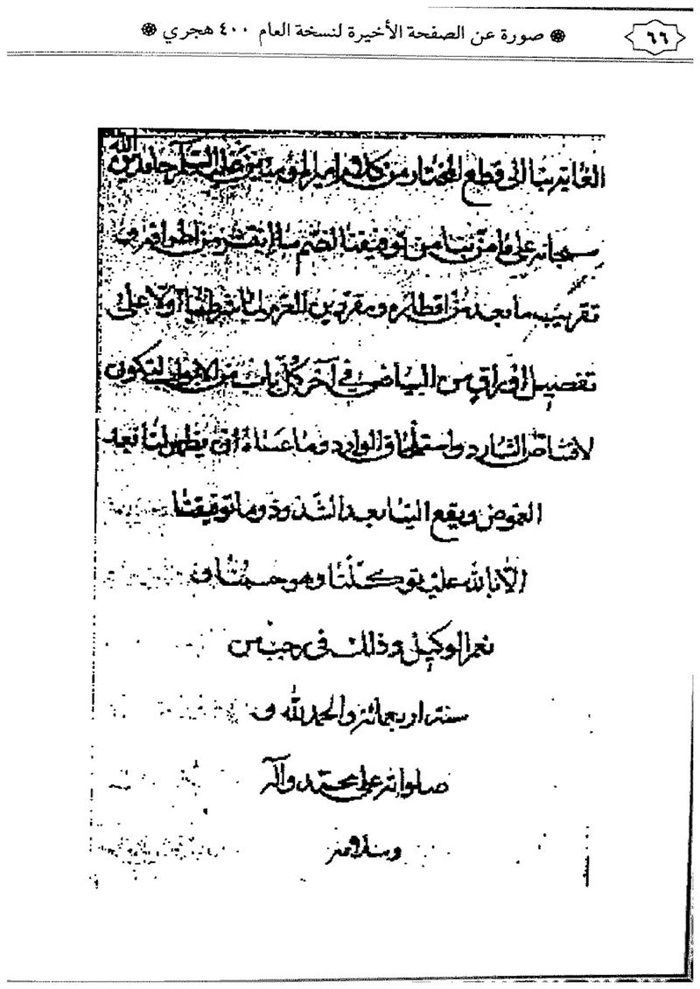 ٦٦
❁ صورة عن الصفحة الأخيرة لنسخة العام ٤٠٠ هجري ❁
الغاية بنا الى قطع المختار من كلام امير المؤمنين عليه السلم حامدين الله
سبحانه على ما من به من توفيقنا لضم ما انتشر من اطرافه و
تقريب ما بعد من اقطاره ومقررين العزم كما شرطنا اولا على
تفضيل اوراق من البياض في آخر كل باب من الابواب لتكون
لاقتناص الشارد واستلحاق الوارد وما عساه ان يظهر لنا بعد
الغموض ويقع الينا بعد الشذوذ وما توفيقنا
الا بالله عليه توكلنا وهو حسبنا و
نعم الوكيل وذلك في رجب من
سنة اربعمائة والحمد لله و
صلواته على محمد وآله
وسلامه